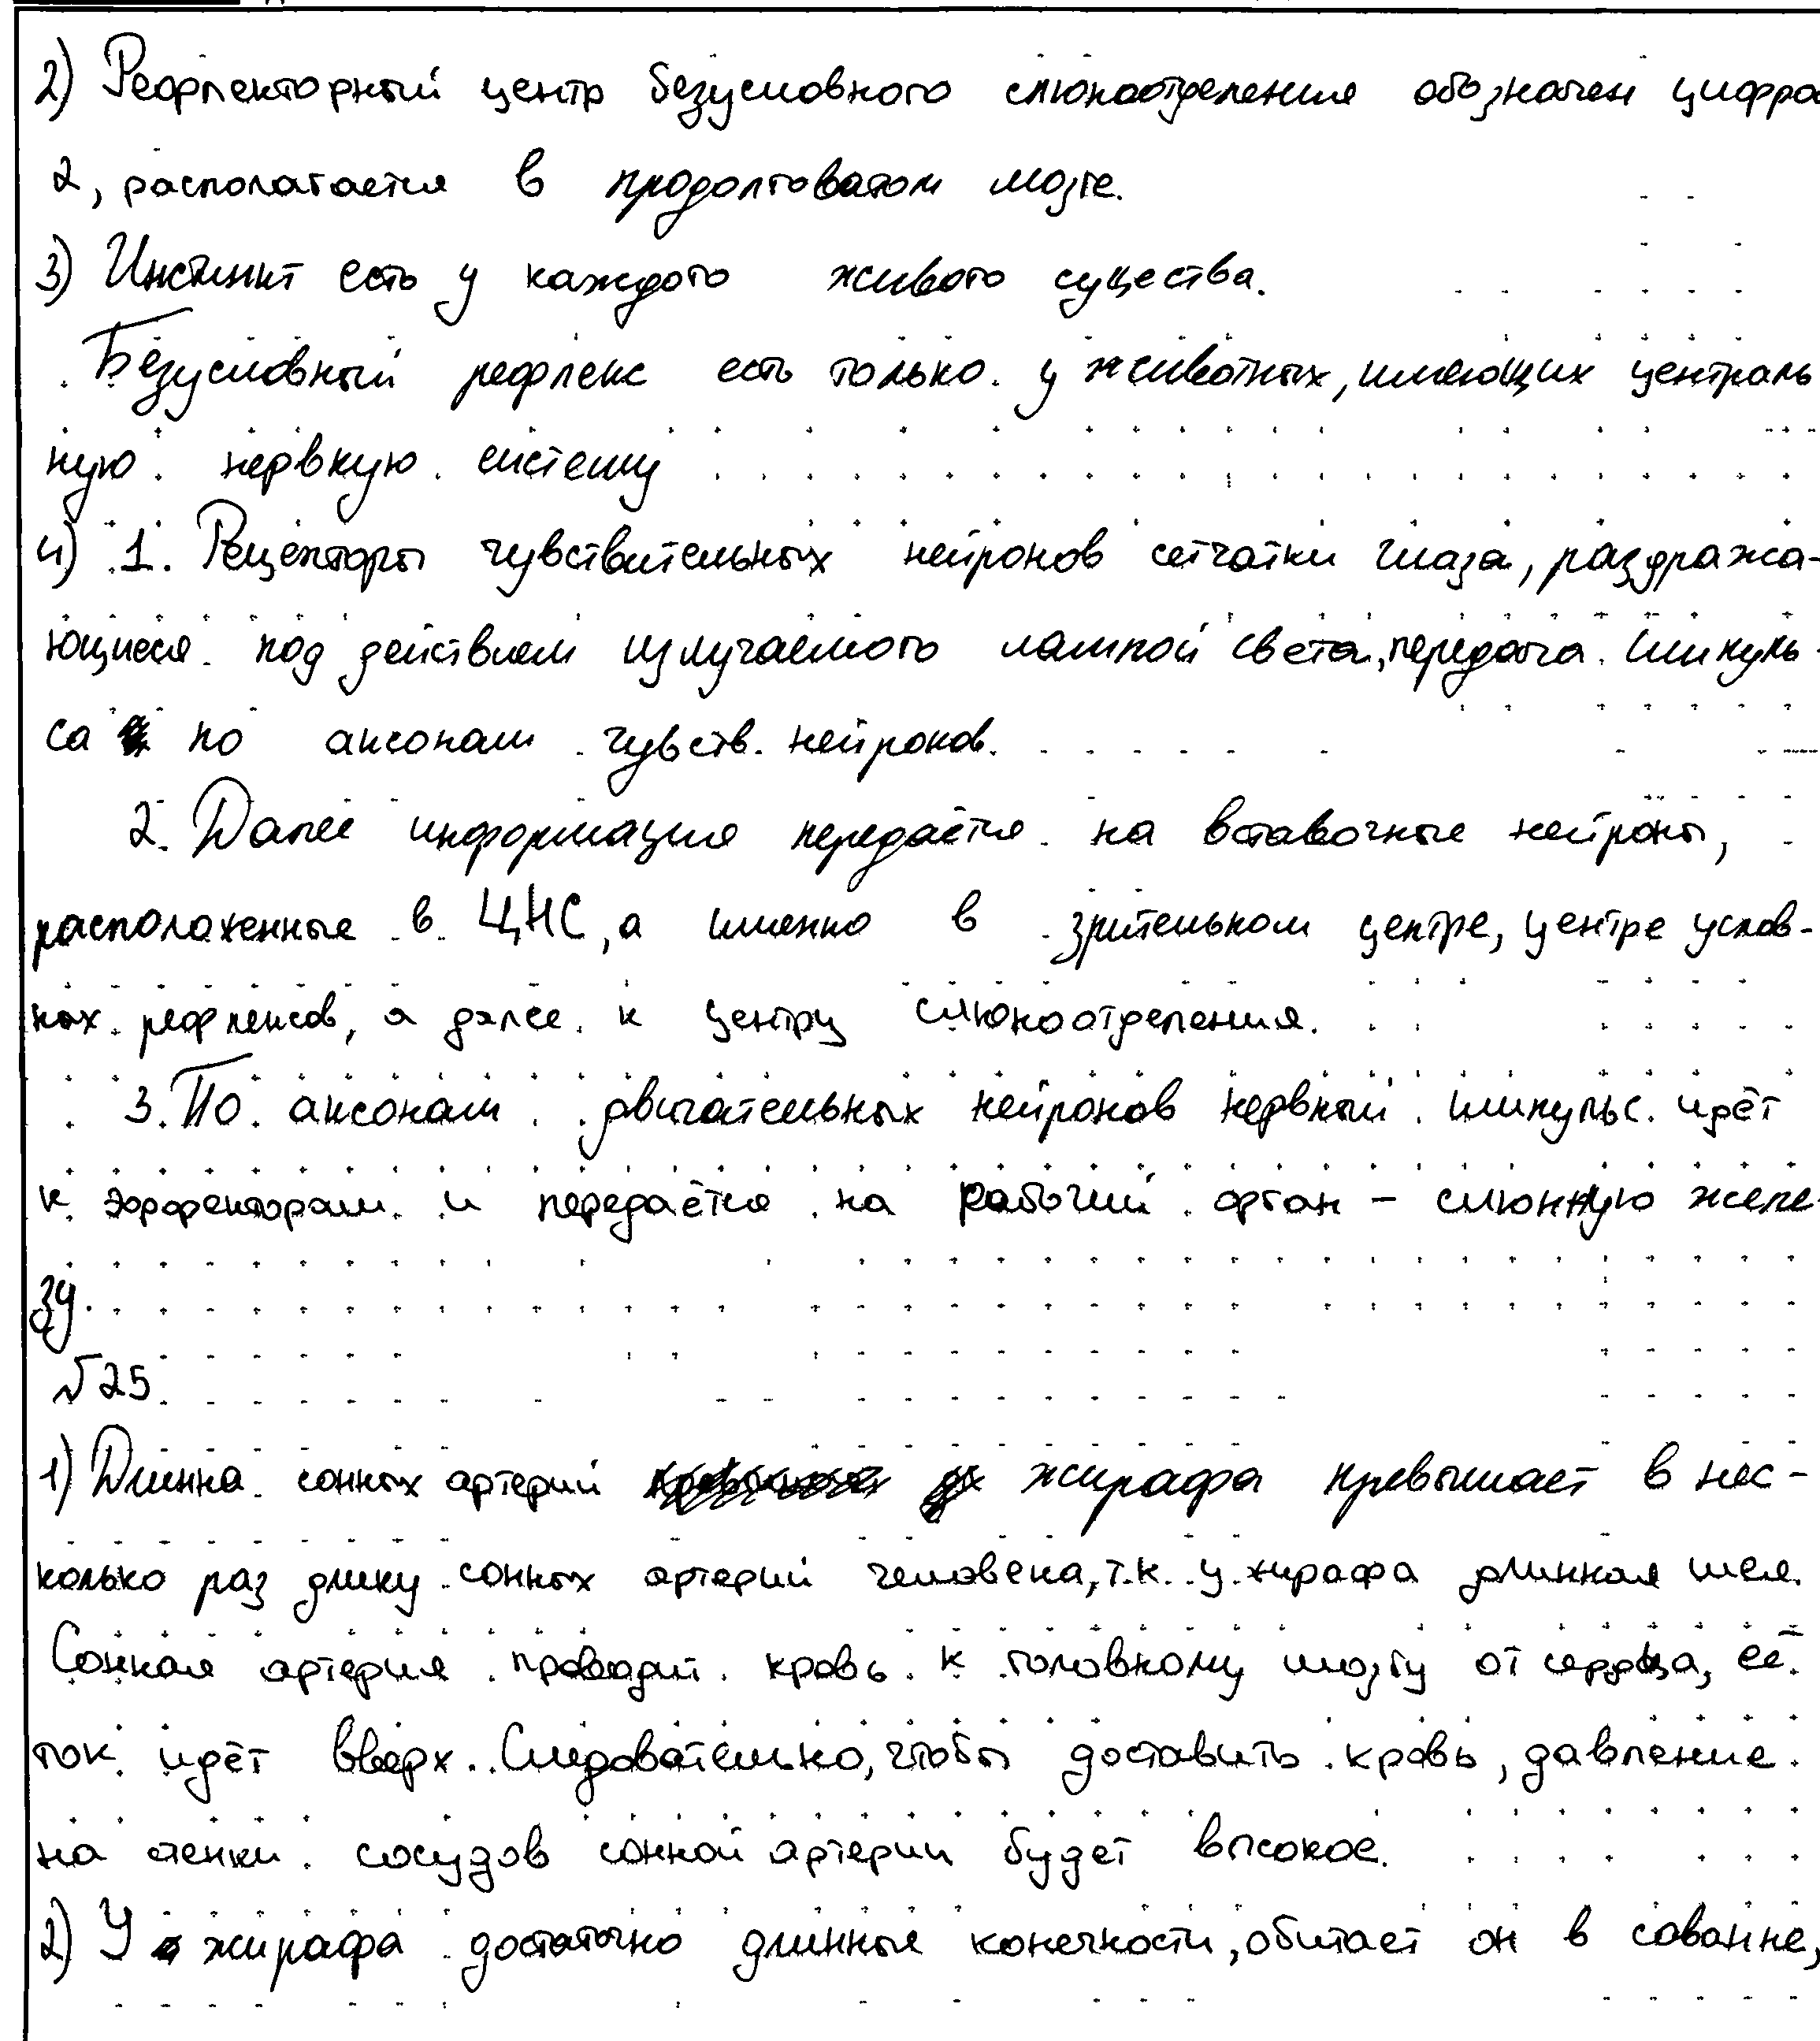 2) Рефлекторный центр безусловного слюноотделения обозначен цифро
2, располагается в продолговатом мозге.
3) Инстинкт есть у каждого живого существа.
Безусловный рефлекс есть только у животных, имеющих централь
ную нервную систему
4) 1. Рецепторы чувствительных нейронов сетчатки глаза, раздража-
ющиеся под действием излучаемого лампой света, передача импуль-
са по аксонам чувств. нейронов.
2. Далее информация передаётся на вставочные нейроны,
расположенные в ЦНС, а именно в зрительном центре, центре услов-
ных рефлексов, а далее к центру слюноотделения.
3. По аксонам двигательных нейронов нервный импульс идёт
к эффекторам и передаётся на рабочий орган - слюнную желе-
зу.
№25
1) Длинна сонных артерий жирафа превышает в нес-
колько раз длину сонных артерий человека, т.к. у жирафа длинная шея.
Сонная артерия проводит кровь к головному мозгу от сердца, её
ток идёт вверх. Следовательно, чтобы доставить кровь, давление
на стенки сосудов сонной артерии будет высокое.
2) У жирафа достаточно длинные конечности, обитает он в саванне,